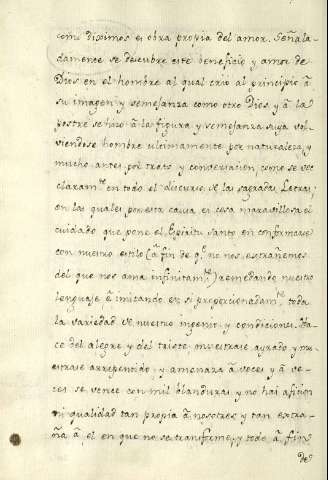 como dissimos es obra propia del amor. Señala-
damente se descubre este beneficio y amor de
Dios en el hombre al qual crió al principio à
su imagen y semejanza como otro Dios y à la
postre se hizo à la figura y semejanza suya vol-
viendose hombre ultimamente por naturaleza, y
mucho antes por trato y conversacion, como se vee
claram.te en todo el discurso de las sagradas Letras;
en las quales por esta causa es cosa maravillosa el
cuidado que pone el Espiritu santo en conformarse
con nuestro estilo (à fin de q.e no nos estrañemos
del que nos ama infinitam.te) remedando nuestro
lenguaje è imitando en si proporcionadam.te toda
la variedad de nuestro ingenio y condiciones. Ha-
ce del alegre y del triste muestrase ayrado y mu-
estrase arrepentido, y amenaza à voces y à ve-
ces se vence con mil blanduras, y no hai aficion
ni qualidad tan propia à nosotros y tan extra-
ña à él en que no se transforme, y todo à fin
de